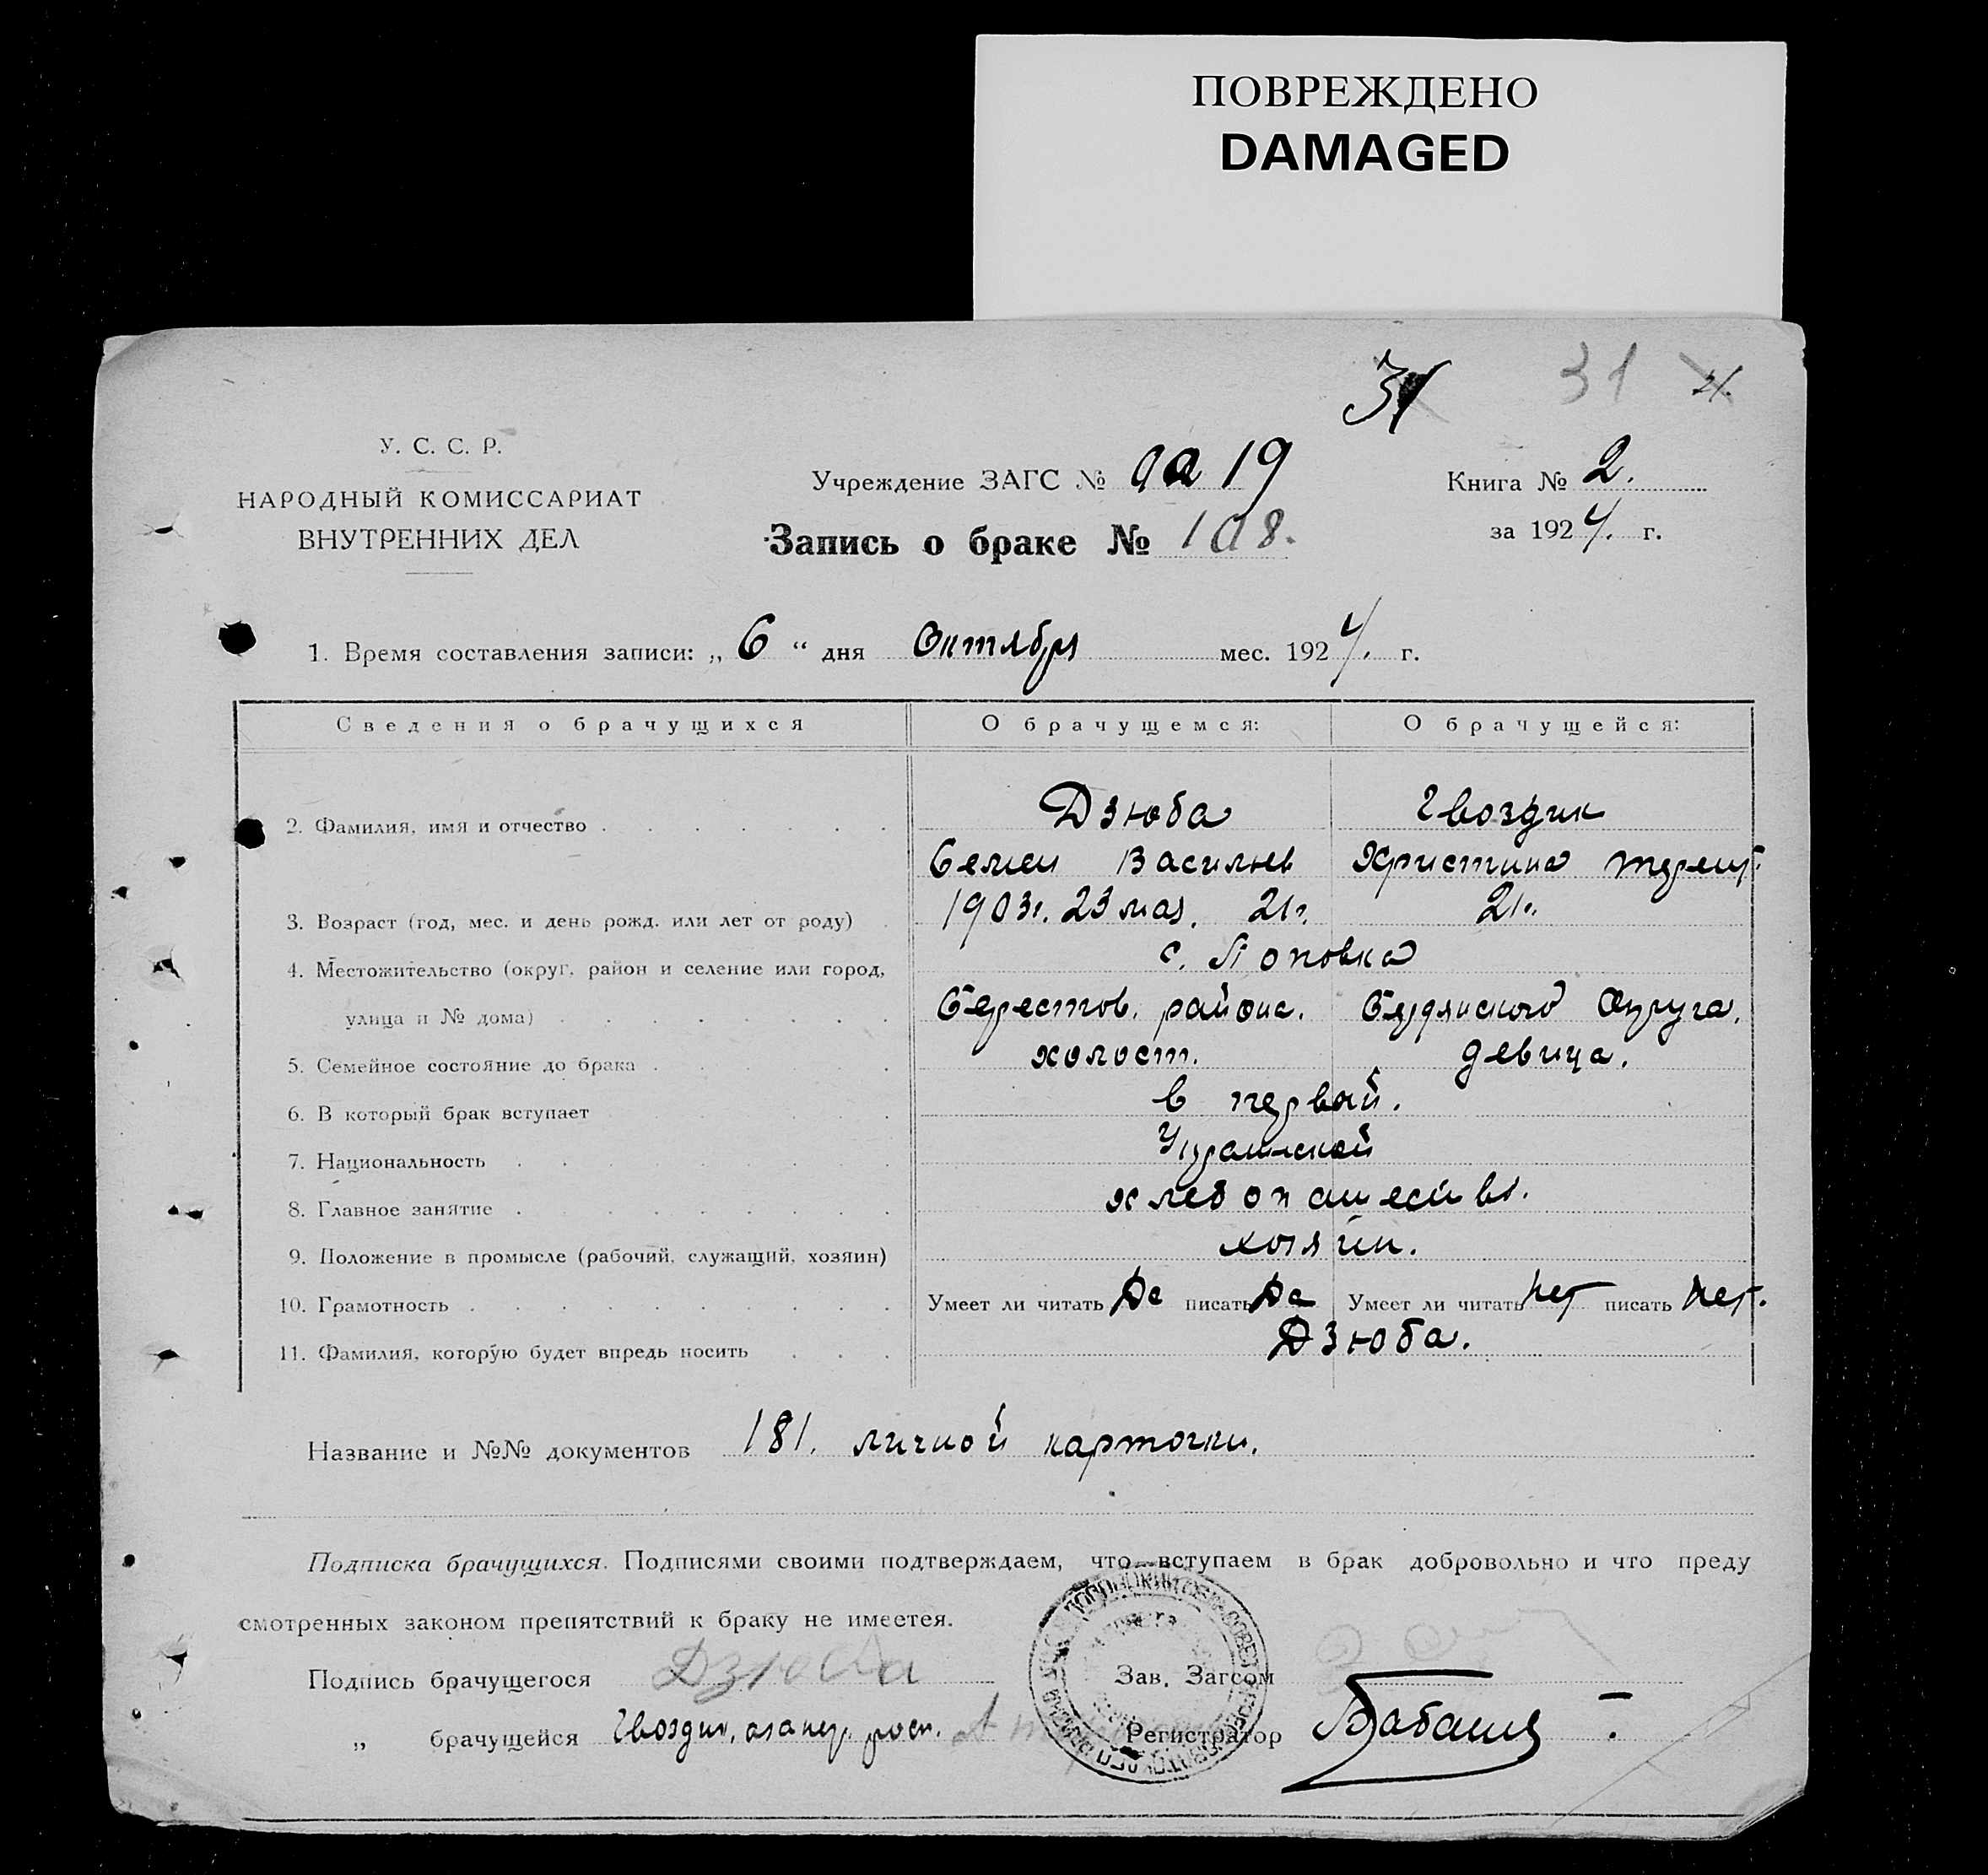 ПОВРЕЖДЕНО
DAMAGED
31
У. С. С. Р.
НАРОДНЫЙ КОМИССАРИАТ
ВНУТРЕННИХ ДЕЛ
Учреждение ЗАГС № 19
Книга № 2.
Запись о браке № 108.
за 1924. г.
1. Время составления записи: „ 6 “ дня Октября мес. 1924. г.
Сведения о брачущихся О брачущемся: О брачущейся:
2. Фамилия, имя и отчество Дзюба Гвоздик
Семен Васильев Христина Терент.
3. Возраст (год, мес. и день рожд. или лет от роду) 1903г. 23 мая. 21г. 21г.
4. Местожительство (округ, район и селение или город, с. Поповка
улица и № дома) Берестов. района. Бердянского Округа.
5. Семейное состояние до брака холост. девица.
6. В который брак вступает в первый.
7. Национальность Украинской
8. Главное занятие
9. Положение в промысле (рабочий, служащий, хозяин) хозяин.
10. Грамотность Умеет ли читать Да писать Да Умеет ли читать Нет писать Нет.
11. Фамилия, которую будет впредь носить Дзюба.
Название и №№ документов 181. личной карточки.
Подписка брачущихся. Подписями своими подтверждаем, что вступаем в брак добровольно и что преду
смотренных законом препятствий к браку не имеется.
Подпись брачущегося Дзюба Зав. Загсом
„ брачущейся Гвоздик, Регистратор